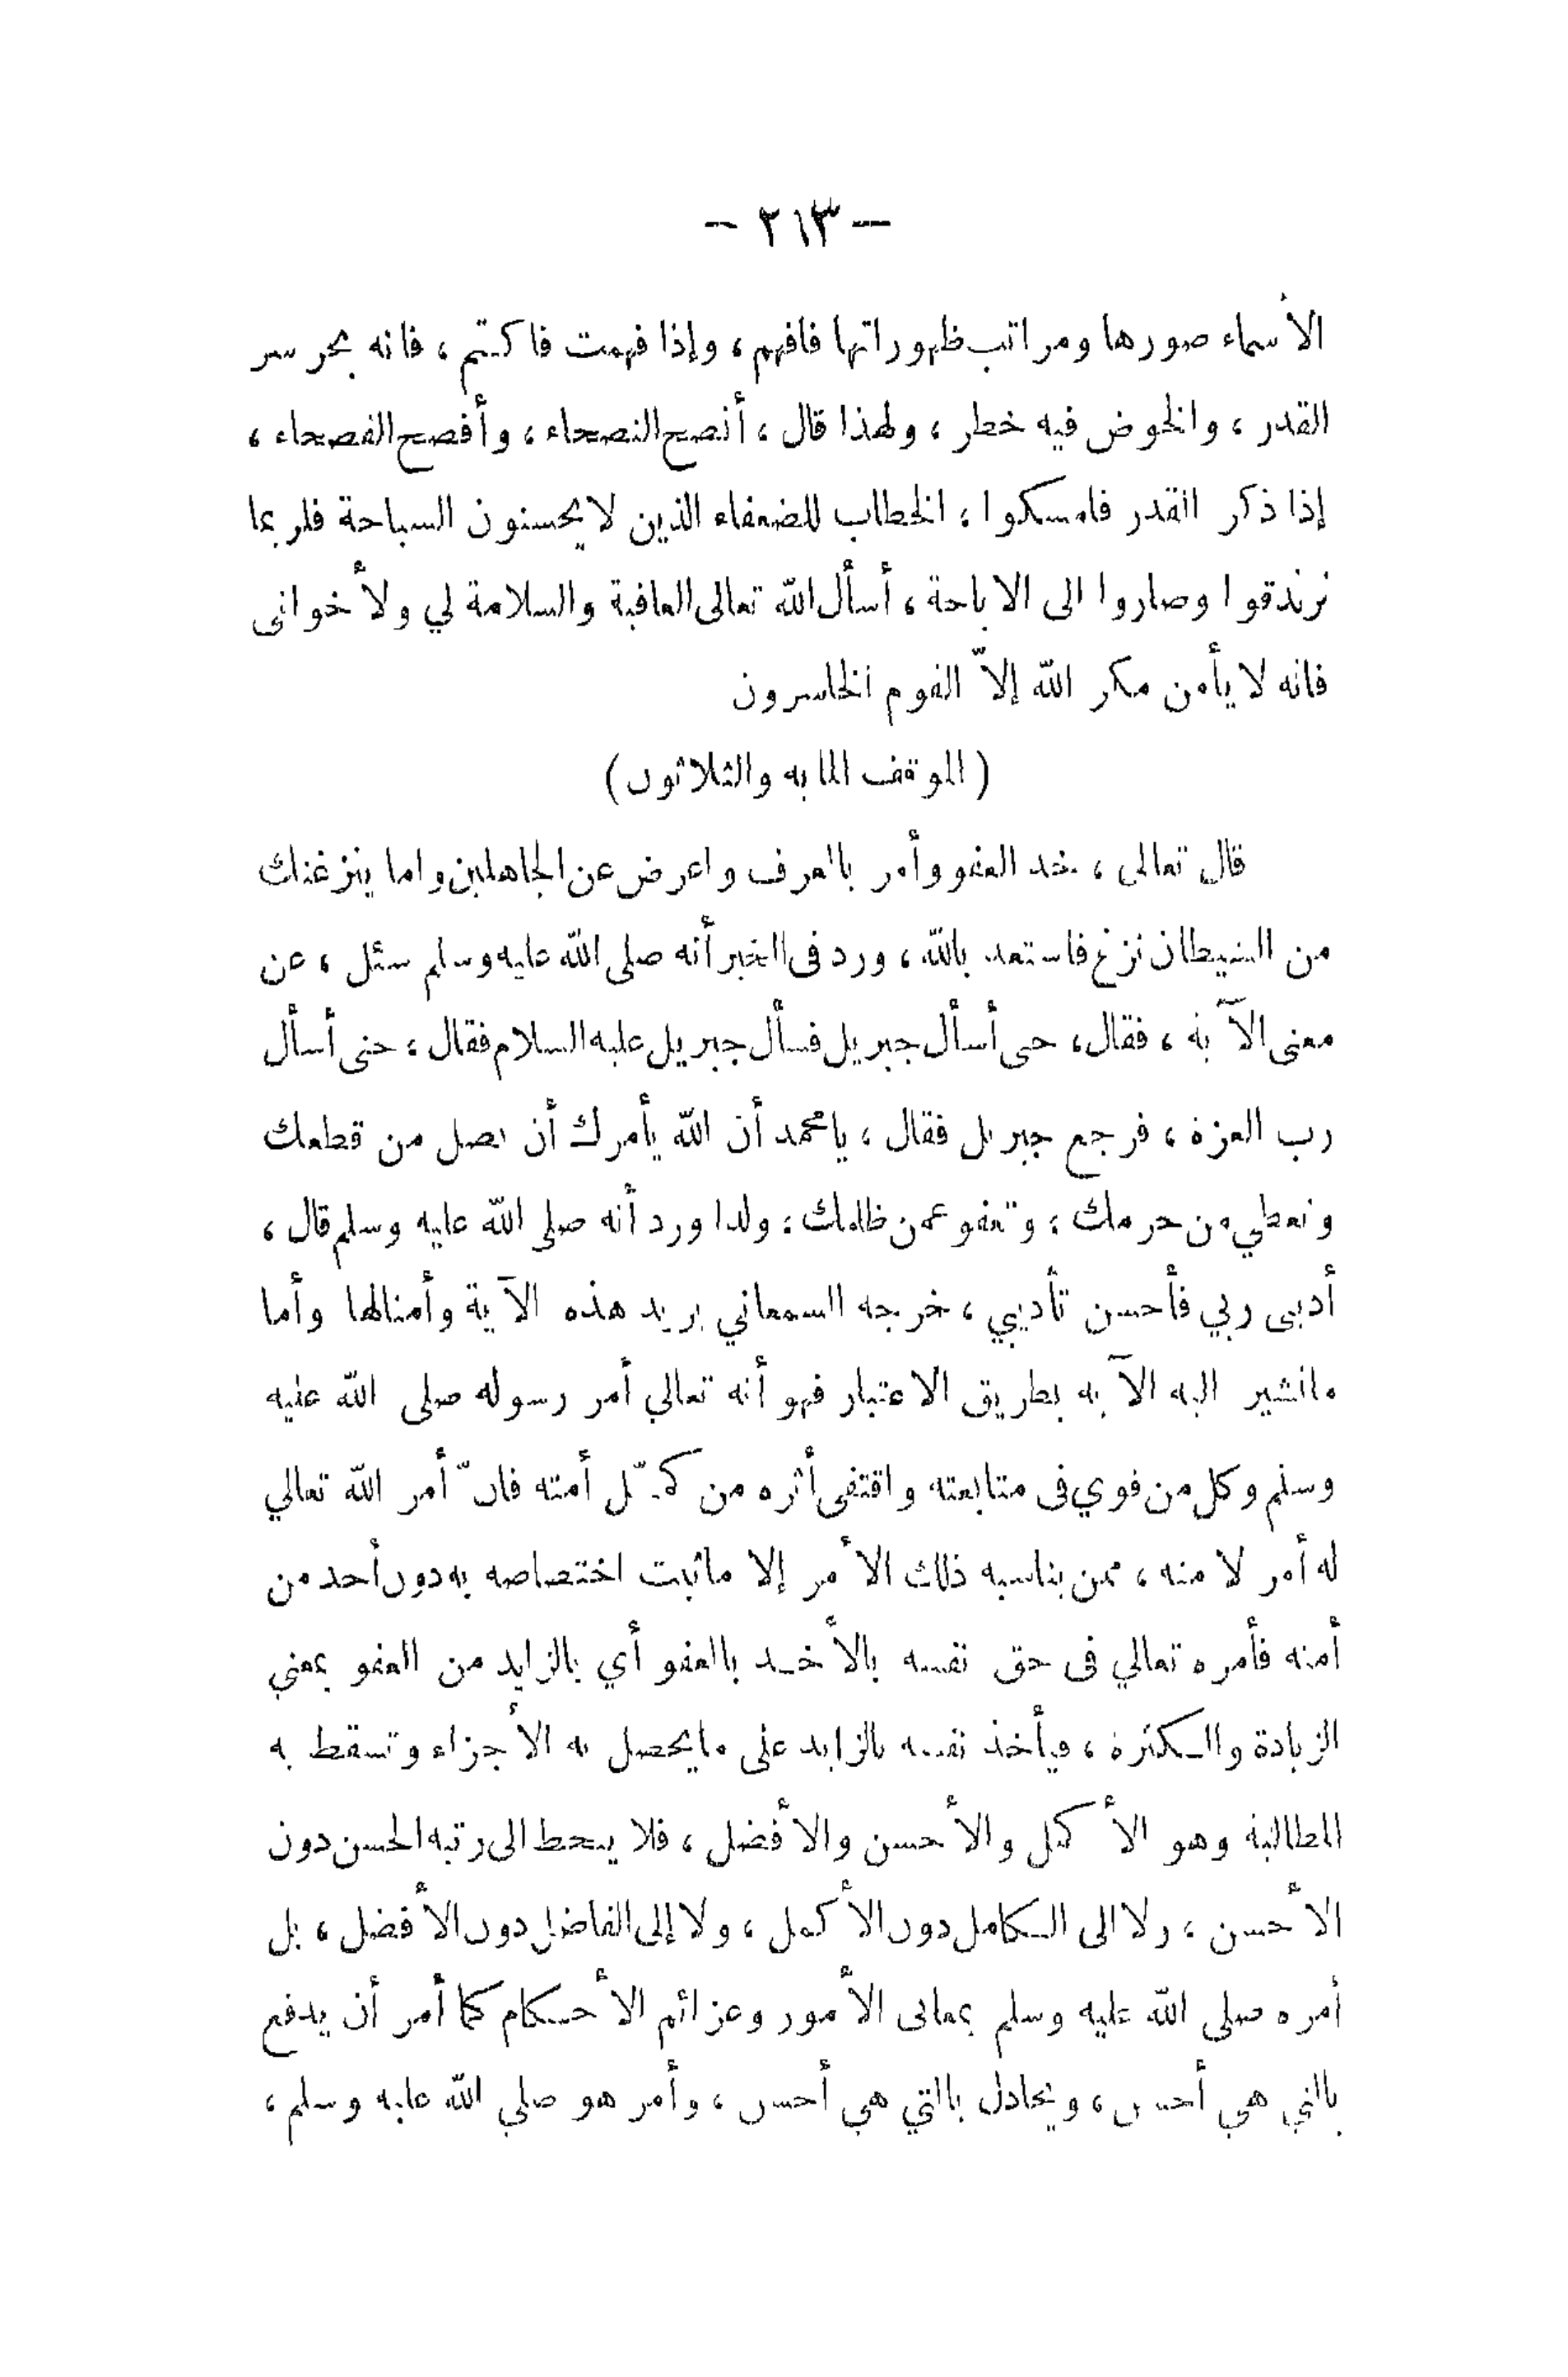 — ٢١٣ —
الأسماء صورها ومراتب ظهوراتها فافهم، وإذا فهمت فاكتم، فانه بحر سر
القدر، والخوض فيه خطر، ولهذا قال، أنصح النصحاء، وأفصح الفصحاء،
إذا ذكر القدر فامسكوا، الخطاب للضعفاء الذين لا يحسنون السباحة فلربما
تزندقوا وصاروا الى الاباحة، أسأل الله تعالى العافية والسلامة لي ولأخواني
فانه لا يأمن مكر الله إلاّ القوم الخاسرون
(الموقف المايه والثلاثون)
قال تعالى، خذ العفو وأمر بالعرف واعرض عن الجاهلين واما ينزغنك
من الشيطان نزغ فاستعذ بالله، ورد فى الخبر أنه صلى الله عليه وسلم سئل، عن
معنى الآية، فقال، حتى أسأل جبريل فسأل جبريل عليه السلام فقال، حتى أسأل
رب العزة، فرجع جبريل فقال، يا محمد أن الله يأمرك أن تصل من قطعك
وتعطي من حرمك، وتعفو عمن ظلمك، ولذا ورد أنه صلى الله عليه وسلم قال،
أدبنى ربي فأحسن تأديبي، خرجه السمعاني يريد هذه الآية وأمثالها وأما
ما تشير اليه الآيه بطريق الاعتبار فهو أنه تعالي أمر رسوله صلى الله عليه
وسلم وكل من قوي فى متابعته واقتفى أثره من كمّل أمته فانّ أمر الله تعالي
له أمر لامته، ممن يناسبه ذلك الأمر إلا ما ثبت اختصاصه به دون أحد من
أمته فأمره تعالي فى حق نفسه بالأخذ بالعفو أي بالزايد من العفو بمعني
الزيادة والكثرة، فيأخذ نفسه بالزايد على ما يحصل به الأجزاء وتسقط به
المطالبة وهو الأكمل والأحسن والأفضل، فلا ينحط الى رتبه الحسن دون
الأحسن، ولا الى الكامل دون الأكمل، ولا إلى الفاضل دون الأفضل، بل
أمره صلى الله عليه وسلم بمعالى الأمور وعزائم الأحكام كما أمر أن يدفع
بالتي هي أحسن، ويجادل بالتي هي أحسن، وأمر هو صلي الله عليه وسلم،